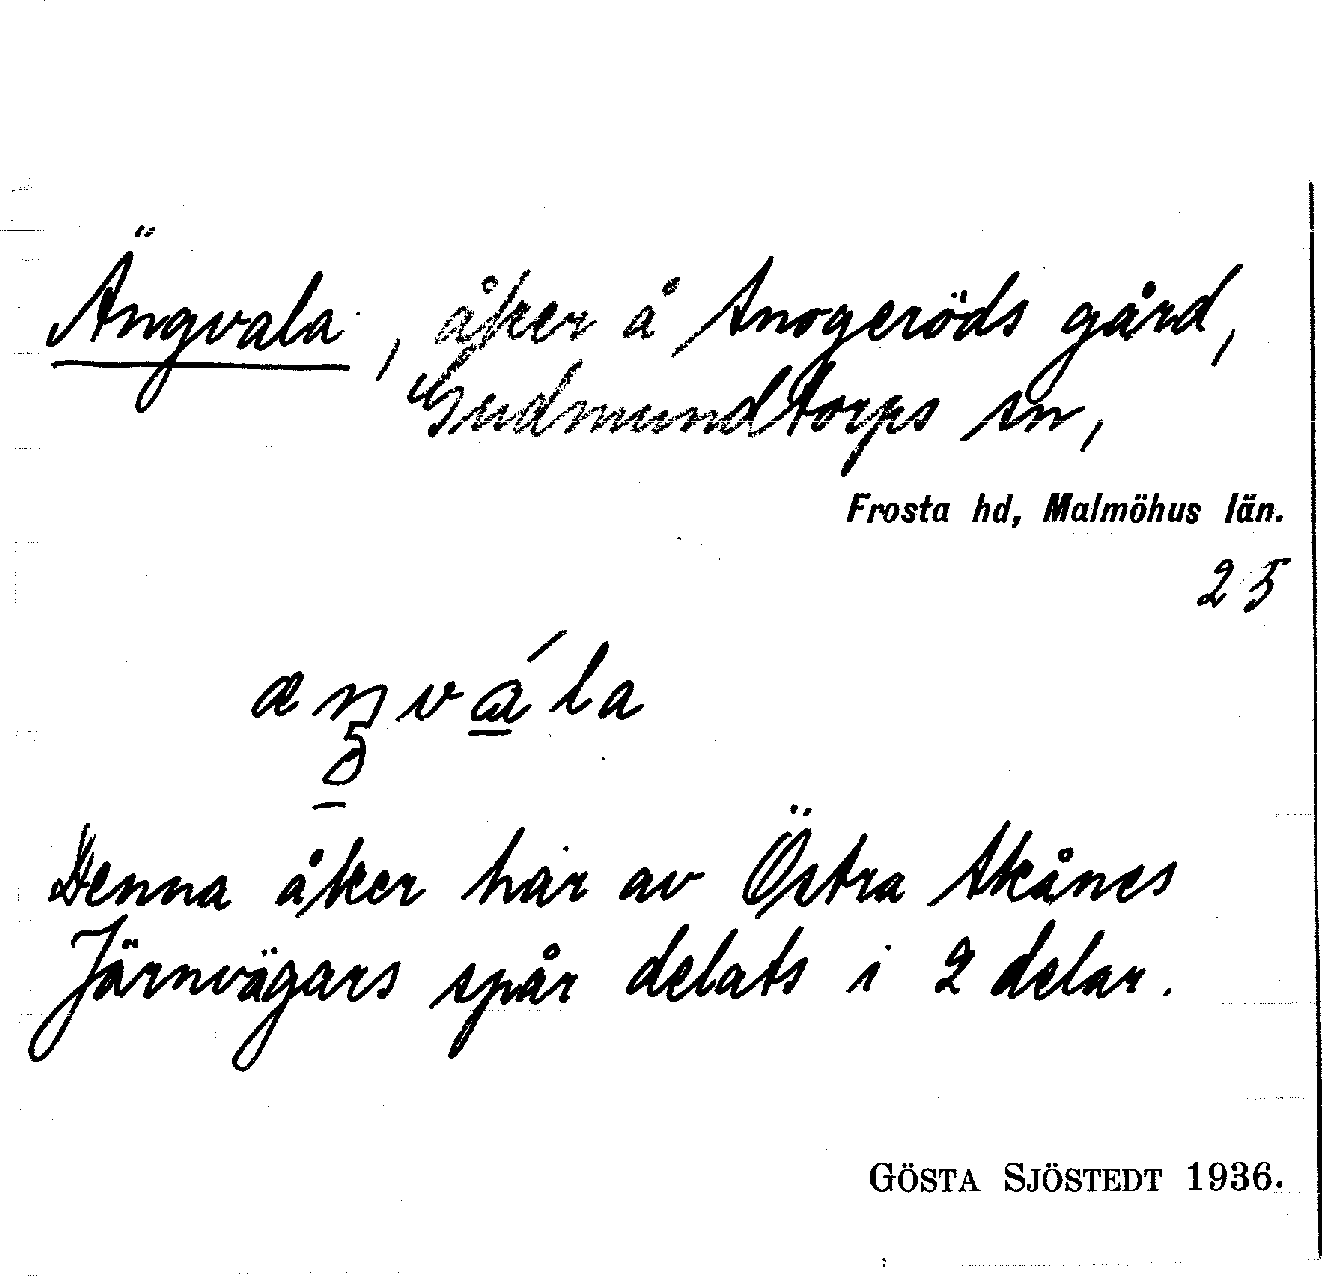 Ängvala, åker å Snogeröds gård,
Gudmundtorps sn,
Frosta hd, Malmöhus län.
25
Denna åker har av Östra Skånes
Järnvägars spår delats i 2 delar.
GÖSTA SJÖSTEDT 1936.